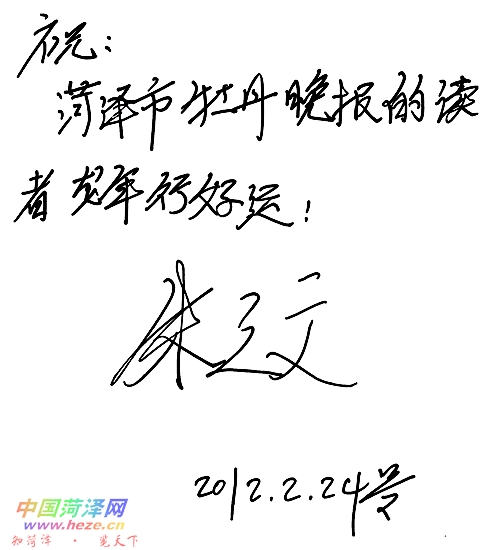 祝：
菏泽市牡丹晚报的读
者龙年行好运！
朱之文
2012.2.24号
中国菏泽网
www.heze.cn
知菏泽 · 览天下